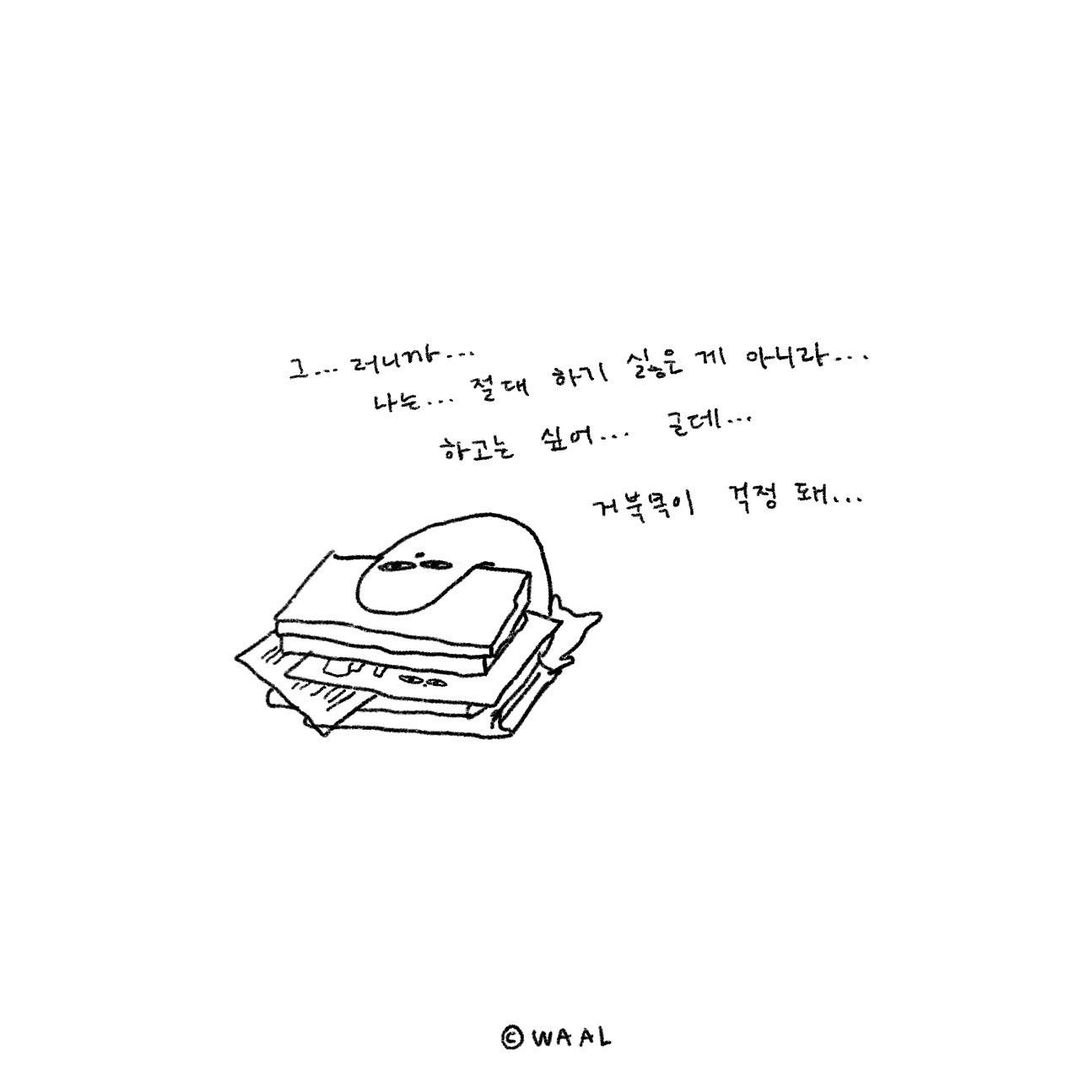 그... 러니까...
나는... 절대 하기 싫은 게 아니라...
하고는 싶어... 근데...
거북목이 걱정 돼...
© WAAL